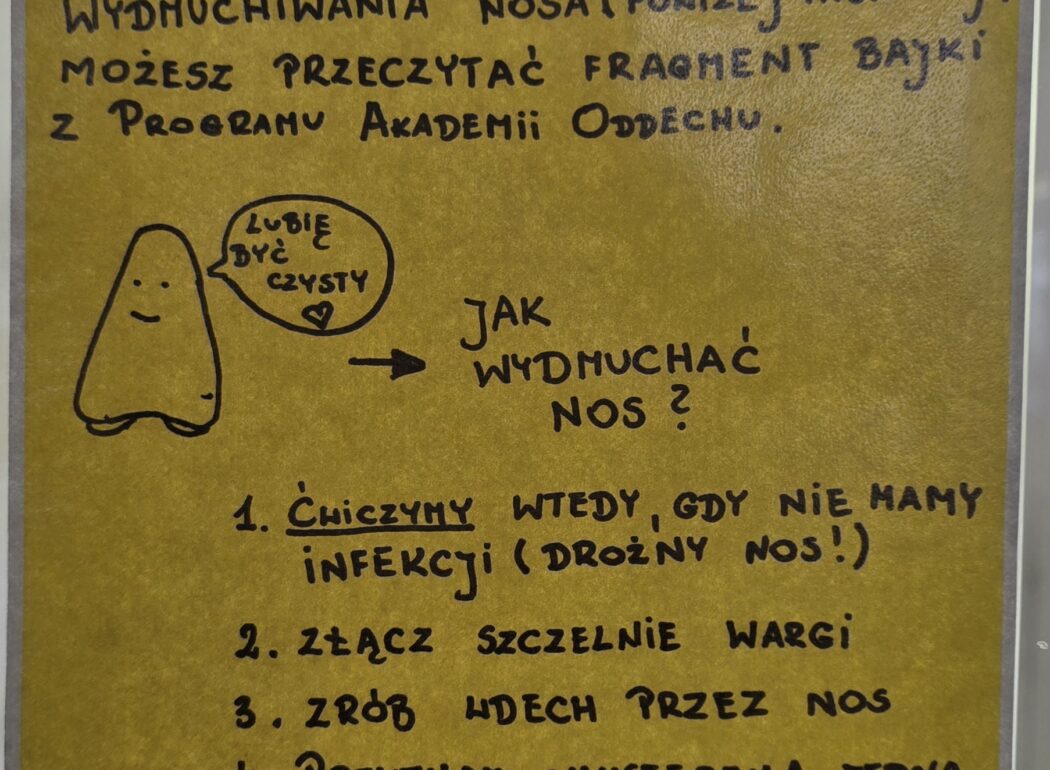 WYDMUCHIWANIA NOSA
MOŻESZ PRZECZYTAĆ FRAGMENT BAJKI
Z PROGRAMU AKADEMII ODDECHU.
LUBIĘ
BYĆ
CZYSTY
JAK
WYDMUCHAĆ
NOS?
1. ĆWICZYMY WTEDY, GDY NIE MAMY
INFEKCJI (DROŻNY NOS!)
2. ZŁĄCZ SZCZELNIE WARGI
3. ZRÓB WDECH PRZEZ NOS